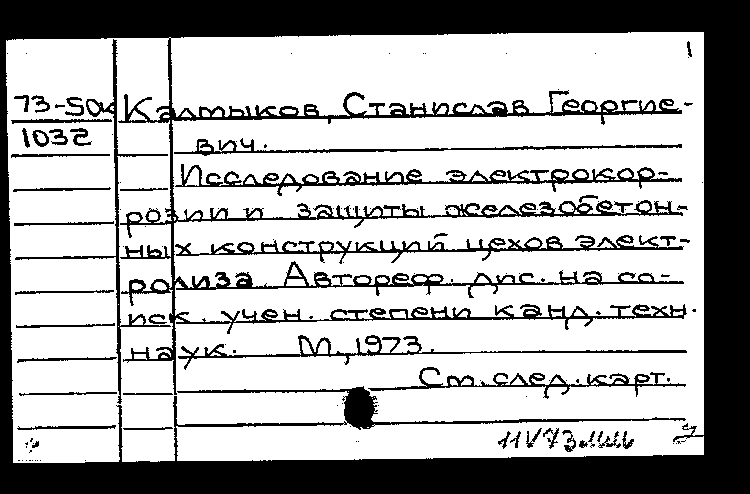 1
73-50к Калтыков, Станислав Георгие-
1032 вич.
Исследование электрокор-
розии и защиты железобетон-
ных конструкций цехов элект-
ролиза. Автореф. дис. на со-
иск. учен. степени канд. техн.
наук. М., 1973.
См. след. карт.